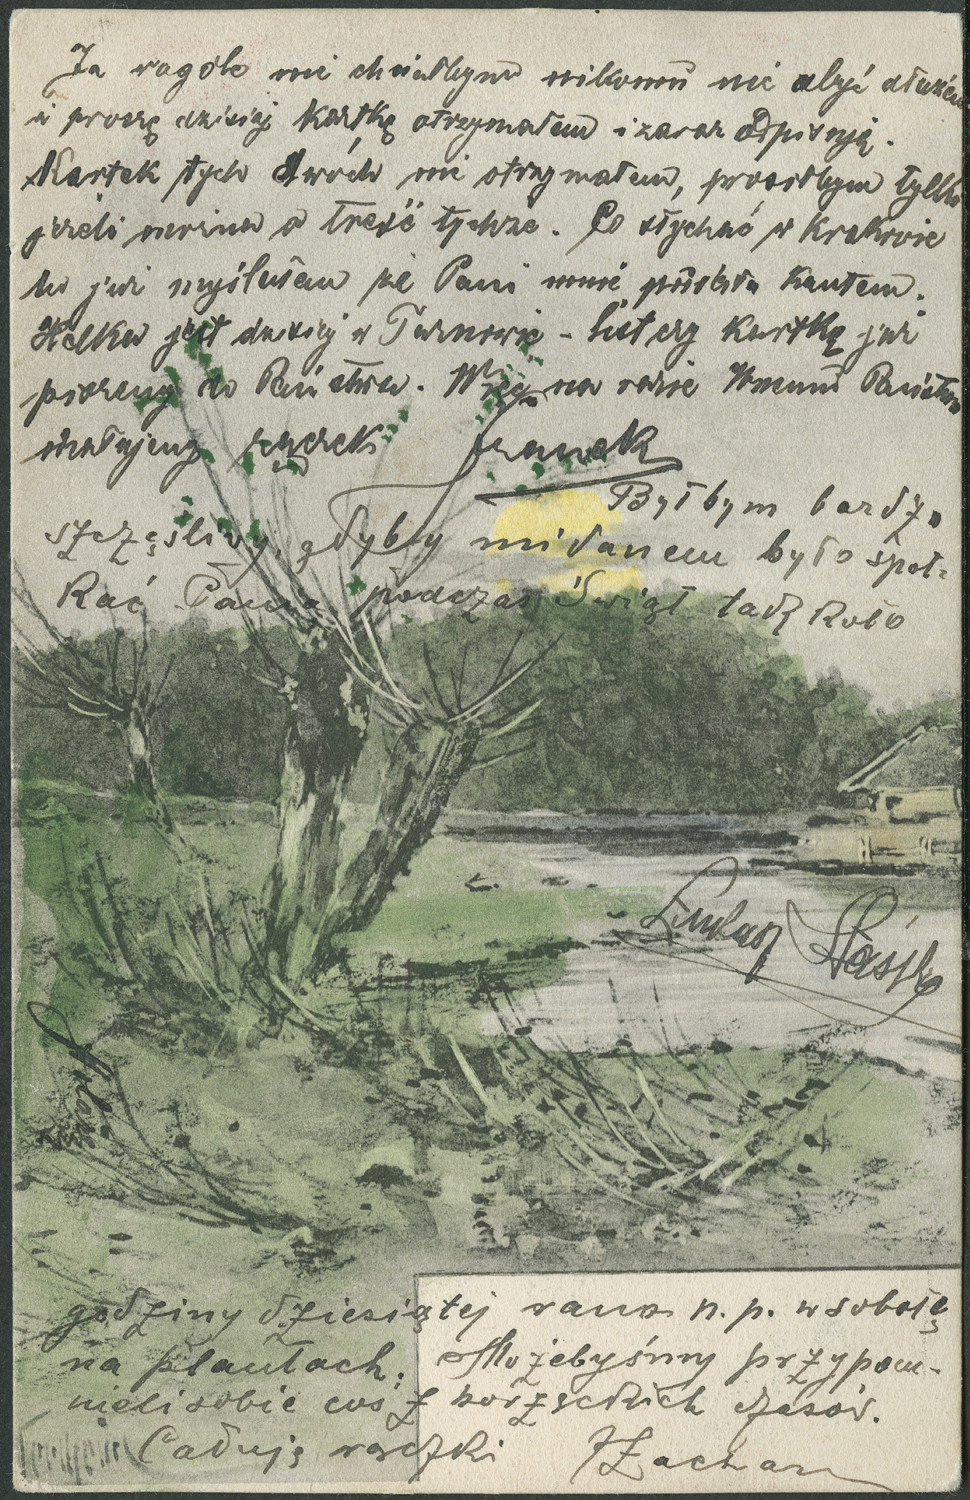 Ja wogóle nie chciałbym nikomu nic być dłużen
i proszę dzisiaj kartkę otrzymałem i zaraz odpisuję.
Kartek tych dwóch nie otrzymałem, prosiłbym tylko
jeżeli można o treść tychże. Co słychać w Krakowie
bo już myślałem że Pani mnie kantem.
Helka jest dzisiaj w Tarnowie - kartkę już
piszemy do Państwa. na razie Państwa
rączek Franek
Byłbym bardzo
szczęśliwy, gdyby mi danem było spot-
kać Panią podczas Świąt tak koło
Łukasz
godziny dziesiątej rano n. p. w sobotę
na plantach. Możebyśmy przypom-
nieli sobie coś z czasów.
Całuję rączki Zachar